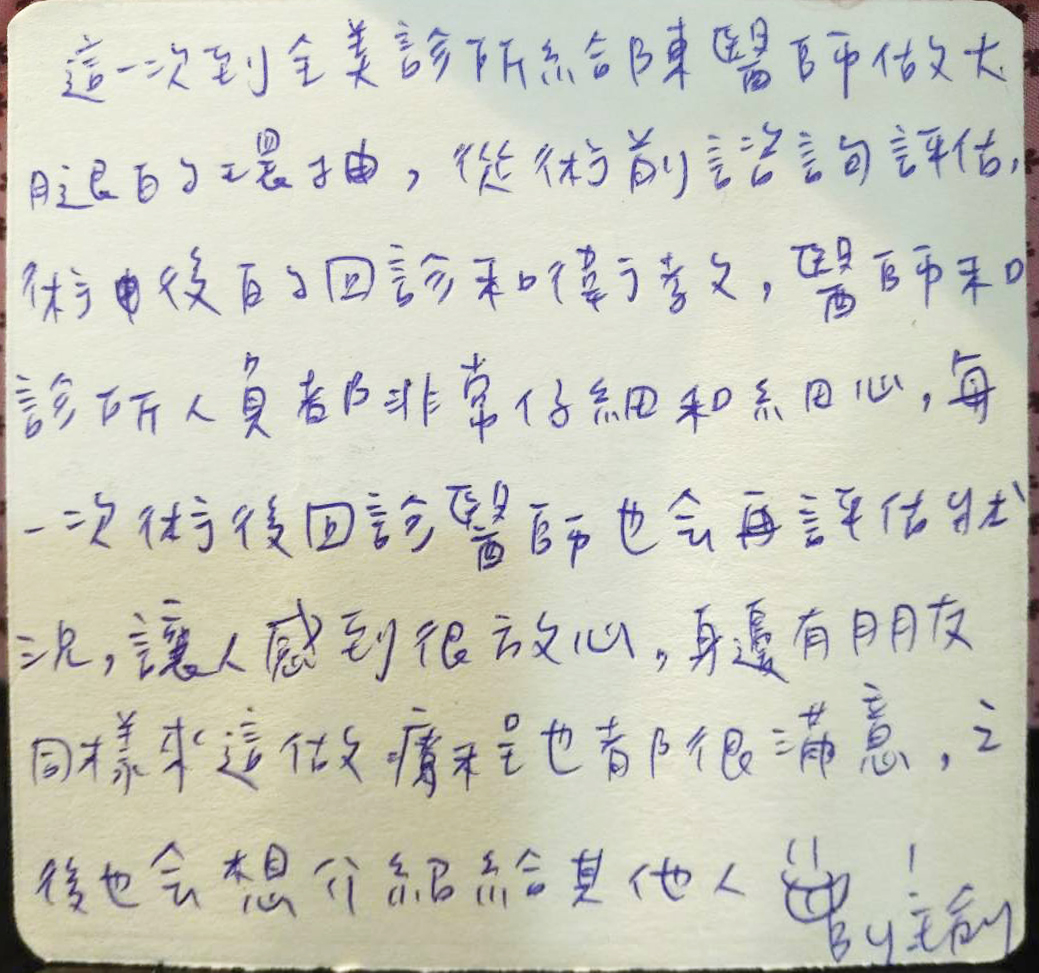 這一次到全美診所給陳醫師做大
腿的環抽,從術前諮詢評估,
術後的回診和衛教,醫師和
診所人員都非常仔細和細心,每
一次術後回診醫師也会再評估狀
況,讓人感到很放心,身邊有朋友
同樣來這做療程也都很滿意,之
後也会想介紹給其他人!
By